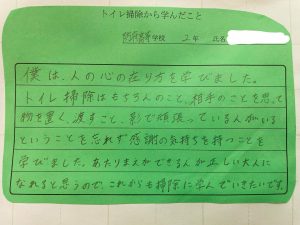 トイレ掃除から学んだこと
学校 2年 氏名
僕は、人の心の在り方を学びました。
トイレ掃除はもちろんのこと、相手のことを思って
物を置く、渡すこと、影で頑張っている人がいる
ということを忘れず感謝の気持ちを持つことを
学びました。あたりまえができる人が正しい大人に
なれると思うので、これからも掃除に学んでいきたいです。